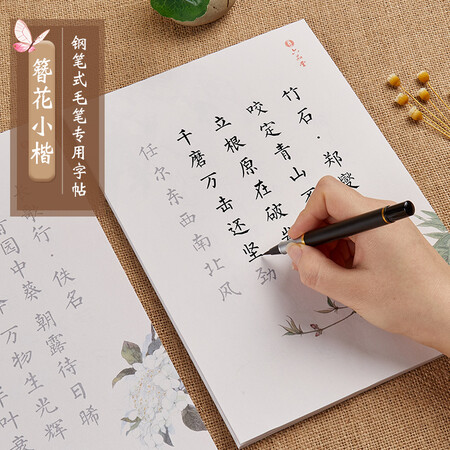 簪花小楷
钢笔式毛笔专用字帖
六品堂
竹石·郑燮
咬定青山
立根原在破
千磨万击还坚劲
任尔东西南北风
行·佚名
园中葵朝露待日晞
万物生光辉
叶衰